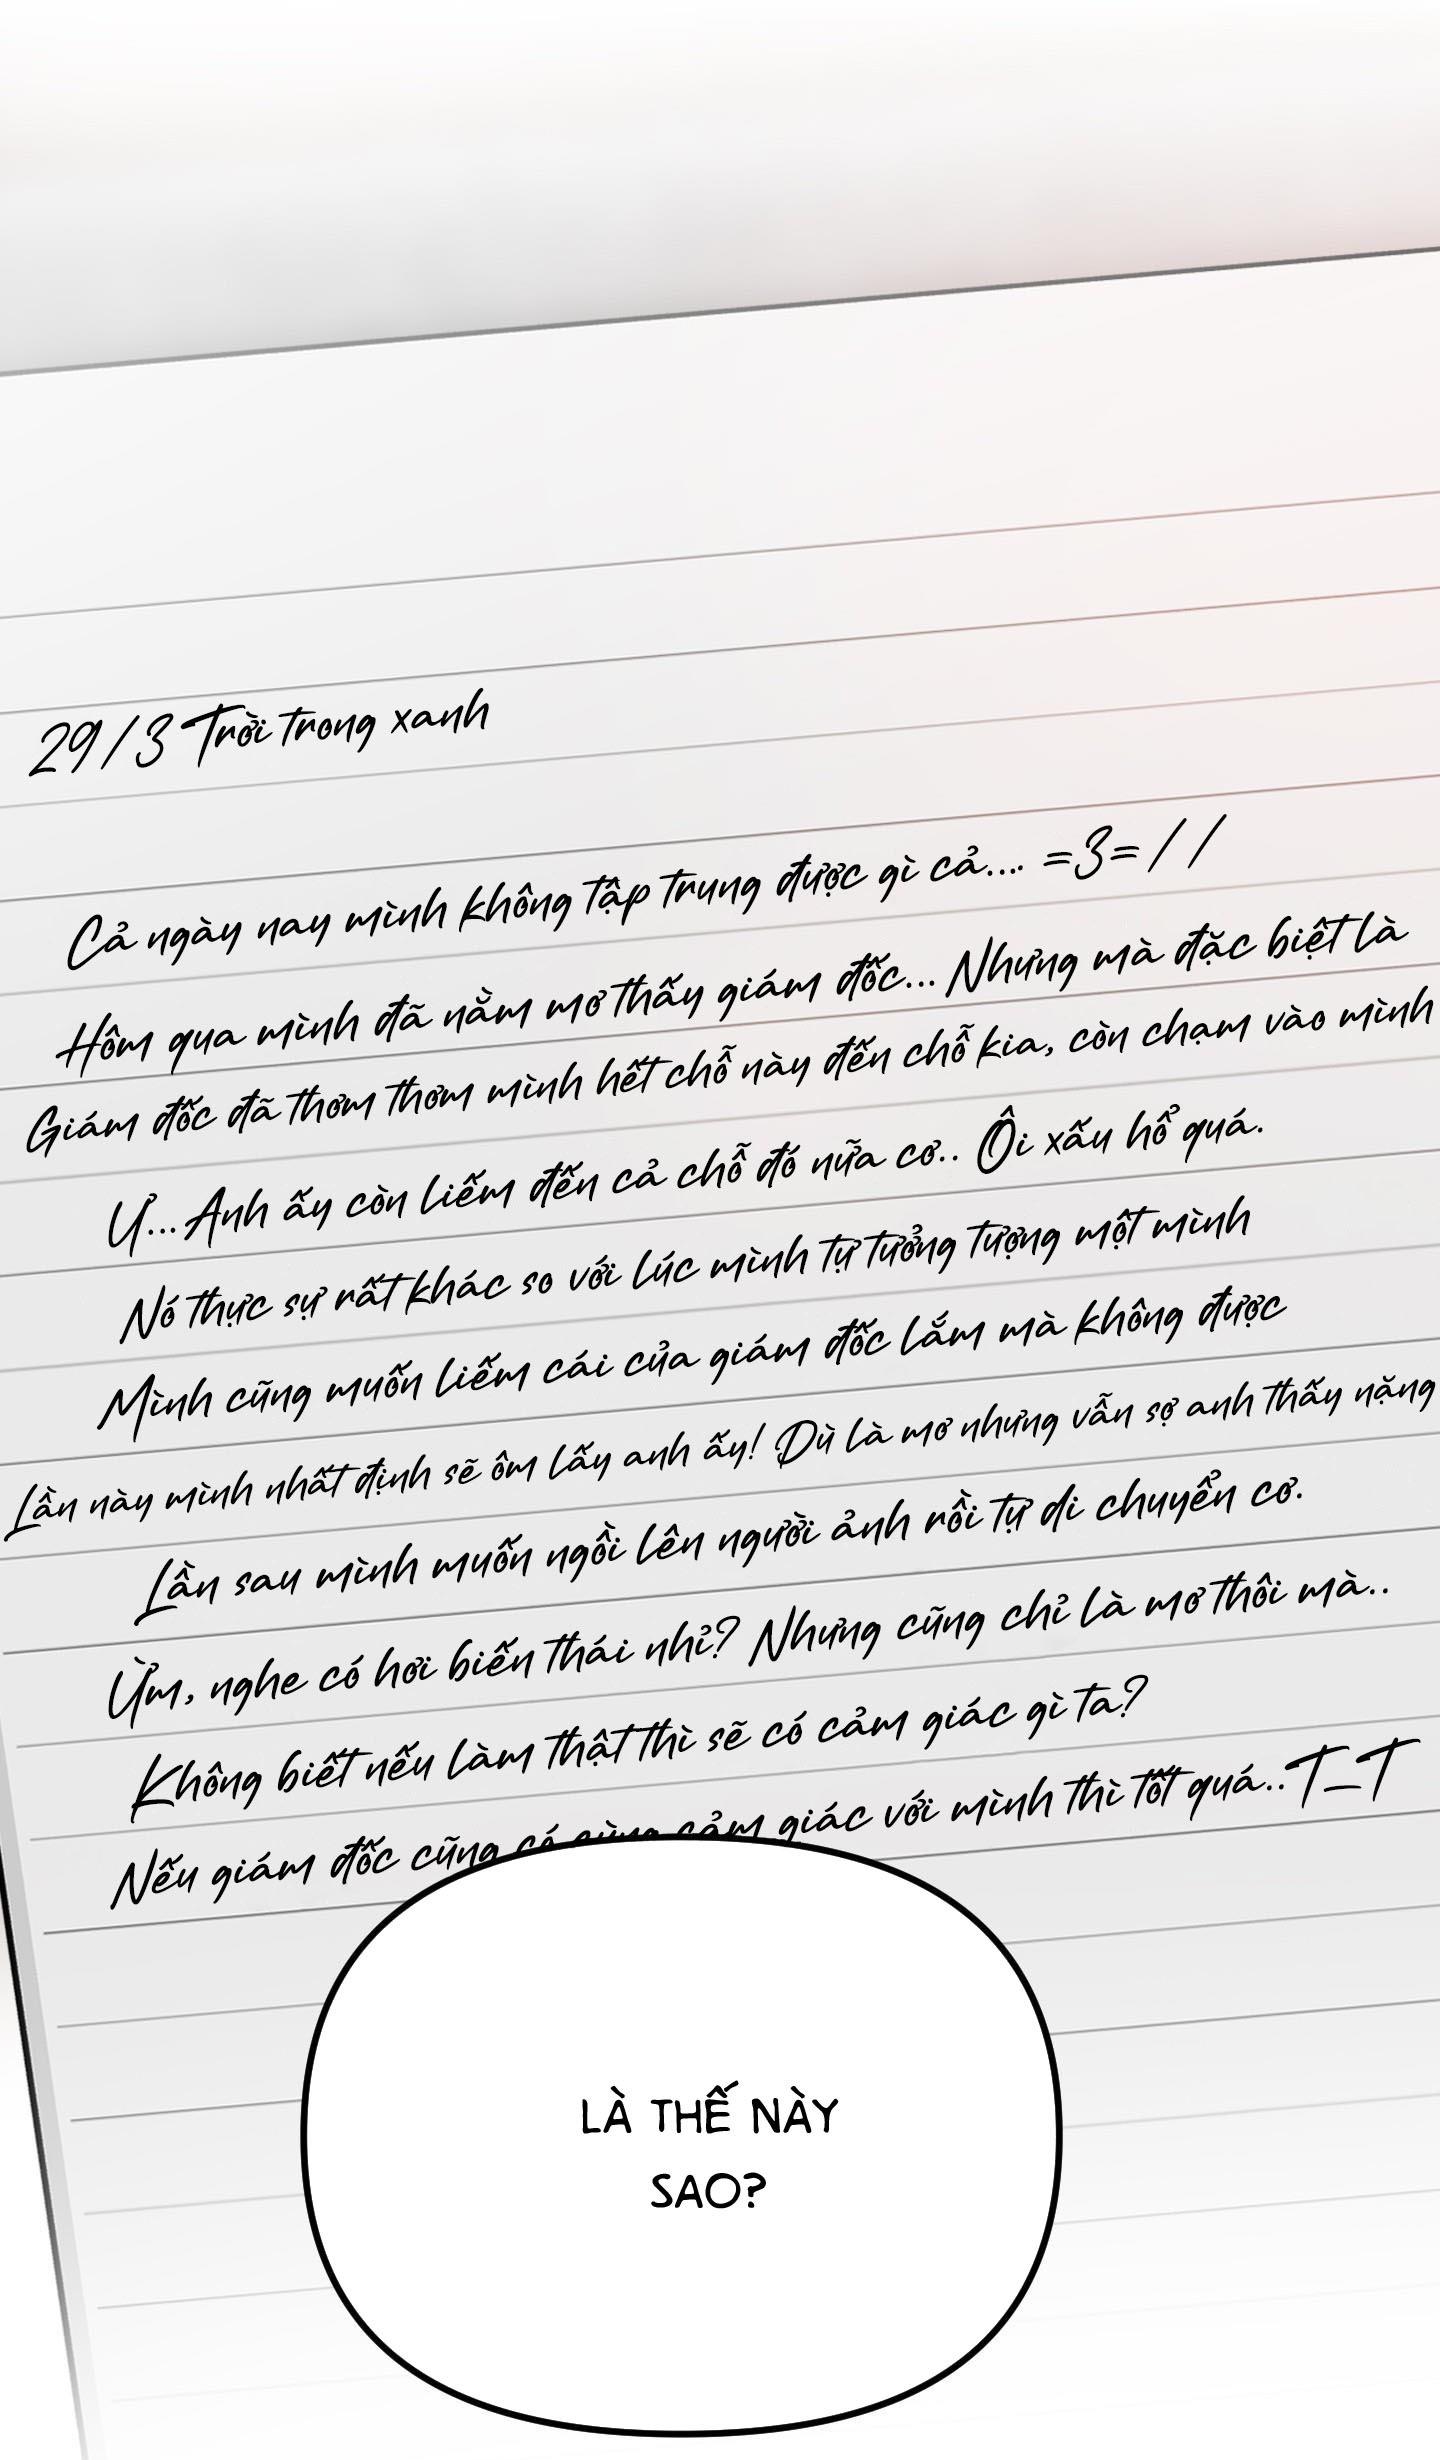 29/3 Trời trong xanh
Cả ngày nay mình không tập trung được gì cả.... =3=//
Hôm qua mình đã nằm mơ thấy giám đốc... Nhưng mà đặc biệt là
Giám đốc đã thơm thơm mình hết chỗ này đến chỗ kia, còn chạm vào mình
Ư... Anh ấy còn liếm đến cả chỗ đó nữa cơ.. Ôi xấu hổ quá.
Nó thực sự rất khác so với lúc mình tự tưởng tượng một mình
Mình cũng muốn liếm cái của giám đốc lắm mà không được
Lần này mình nhất định sẽ ôm lấy anh ấy! Dù là mơ nhưng vẫn sợ anh thấy nặng
Lần sau mình muốn ngồi lên người ảnh rồi tự di chuyển cơ.
Ừm, nghe có hơi biến thái nhỉ? Nhưng cũng chỉ là mơ thôi mà..
Không biết nếu làm thật thì sẽ có cảm giác gì ta?
Nếu giám đốc cũng có cùng cảm giác với mình thì tốt quá..T_T
LÀ THẾ NÀY
SAO?